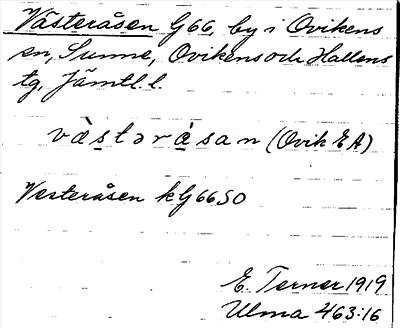 Västeråsen G66, by i Ovikens
sn, Sunne, Ovikens och Hallens
tg, Jämtl. l.
vàstəràsan (Ovik EA)
Vesteråsen kG66 SO
E. Terner 1919
Ulma 463:16